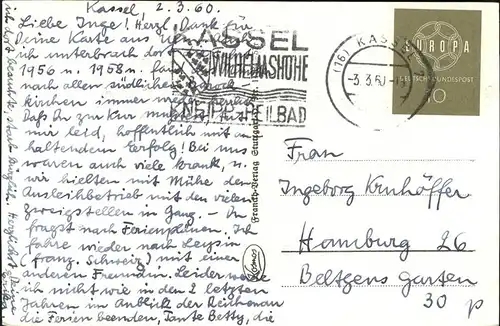 Kassel, 2.3.60.
Liebe Inge! Herzl. Dank für
Deine Karte aus
ich unterbrach dort
1956 u. 1958 u. fand
nach allen südlichen Barock-
kirchen immer
Daß Du zur Kur mußt
mir leid, hoffentlich mit an-
haltendem Erfolg! Bei uns
waren auch viele krank, u.
wir hielten mit Mühe den
Ausleihbetrieb mit den vielen
Zweigstellen in Gang. – Du
fragst nach Ferienplänen. Ich
fahre wieder nach Leysin
(franz. Schweiz) mit einer
anderen Freundin. Leider werde
ich nicht wie in den 2 letzten
Jahren im Anblick der Reichenau
die Ferien beenden, Tante Betty, die
KASSEL
WILHELMSHÖHE
KNEIPP-HEILBAD
(16) KASSEL
-3.3.60
EUROPA
DEUTSCHE BUNDESPOST
10
Franckh-Verlag Stuttgart
Kosmos
Frau
Ingeborg Kruhöffer
Hamburg 26
Beltgens Garten
30 p